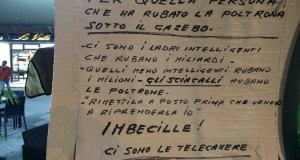 PER QUELLA PERSONA
CHE HA RUBATO LA POLTRONA
SOTTO IL GAZEBO.
-CI SONO I LADRI INTELLIGENTI
CHE RUBANO I MILIARDI -
-QUELLI MENO INTELLIGENTI RUBANO
I MILIONI - GLI SCIACALLI RUBANO
LE POLTRONE.
-"RIMETTILA A POSTO PRIMA CHE VENGA
A RIPRENDERLA IO"
IMBECILLE!
CI SONO LE TELECAMERE